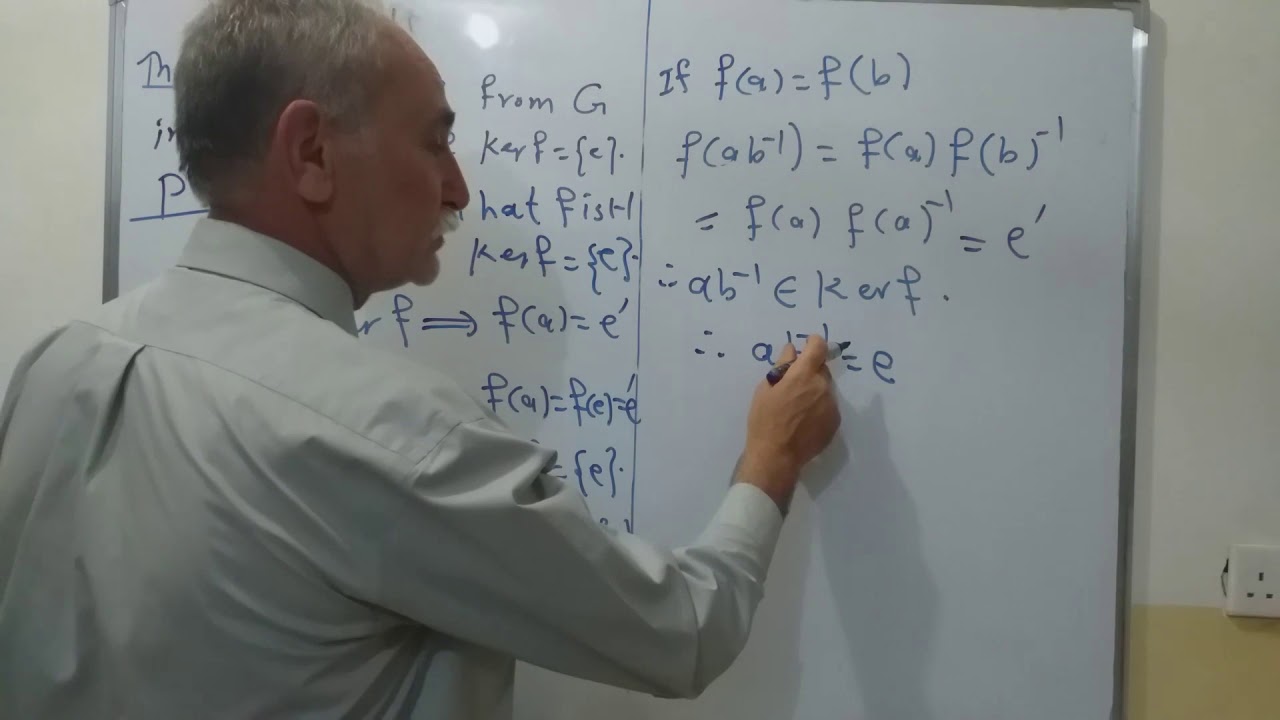 Th
from G
in
Ker f = {e}.
P
hat f is 1-1
Ker f = {e}.
er f ⟹ f(a) = e′
f(a) = f(e) = e′
= {e}.
If f(a) = f(b)
f(ab⁻¹) = f(a) f(b)⁻¹
= f(a) f(a)⁻¹ = e′
∴ ab⁻¹ ∈ Ker f.
∴ ab⁻¹ = e